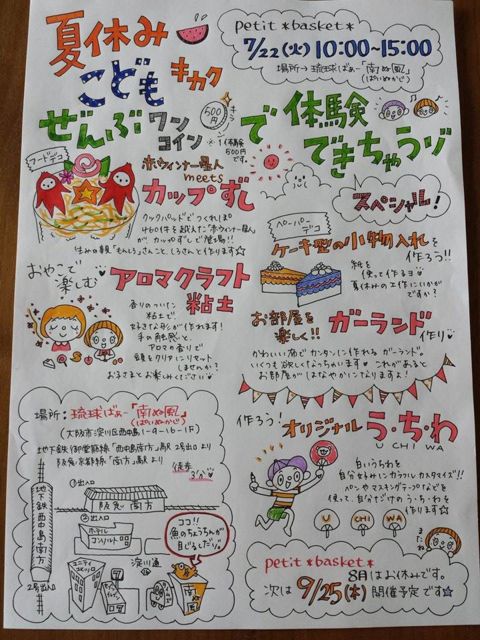 夏休み
こども
キカク
petit*basket*
7/22(火) 10:00~15:00
場所→琉球ばぁー「南ぬ風」
(ぱいぬかじ)
ぜんぶ
ワン
コイン
500円
で
体験
できちゃうゾ
1体験
500円
です。
フードデコ
赤ウィンナー星人
meets
カップずし
クックパッドでつくれぽ
460件を超えた"赤ウィンナー星人"
が、カップずしで登場!!
スペシャル!
ペーパーデコ
ケーキ型の小物入れを
作ろう!!
紙を
使って作るヨ
夏休みの工作にいかが
ですか?
おやこで
楽しむ
アロマクラフト
粘土
香りのついた
粘土で、
好きな形が作れます!
手の触感と、
アロマの香りで
脳をクリアにリセット
しませんか?
おとなさまとお楽しみください
お部屋を
楽しく!!
ガーランド
作り
かわいい布でカンタンに作れるガーランド
いくつも欲しくなっちゃいます これがあると
お部屋がはなやかになりますよ!
場所:琉球ばぁー「南ぬ風」
(ぱいぬかじ)
(大阪市淀川区西中島1-9-16-1F)
地下鉄御堂筋線「西中島南方」駅2号出口より
阪急京都線「南方」駅より
徒歩
3分
③出入口
阪急 南方
②出入口
ホテル
コンソルト
地下鉄西中島南方
2号出入口
ココ!!
魚のちょうちんが
目じるしだヨ。
淀川通
南ぬ風
作ろう!
オリジナル う・ち・わ
UCHIWA
白いうちわを
自分好みにカラフルカスタマイズ!!
ペンやマスキングテープなどを
使って、自分だけのう・ち・わを
作ります
U CHI WA
またね
petit*basket*
8月はお休みです。
次は 9/25(木) 開催予定です☆